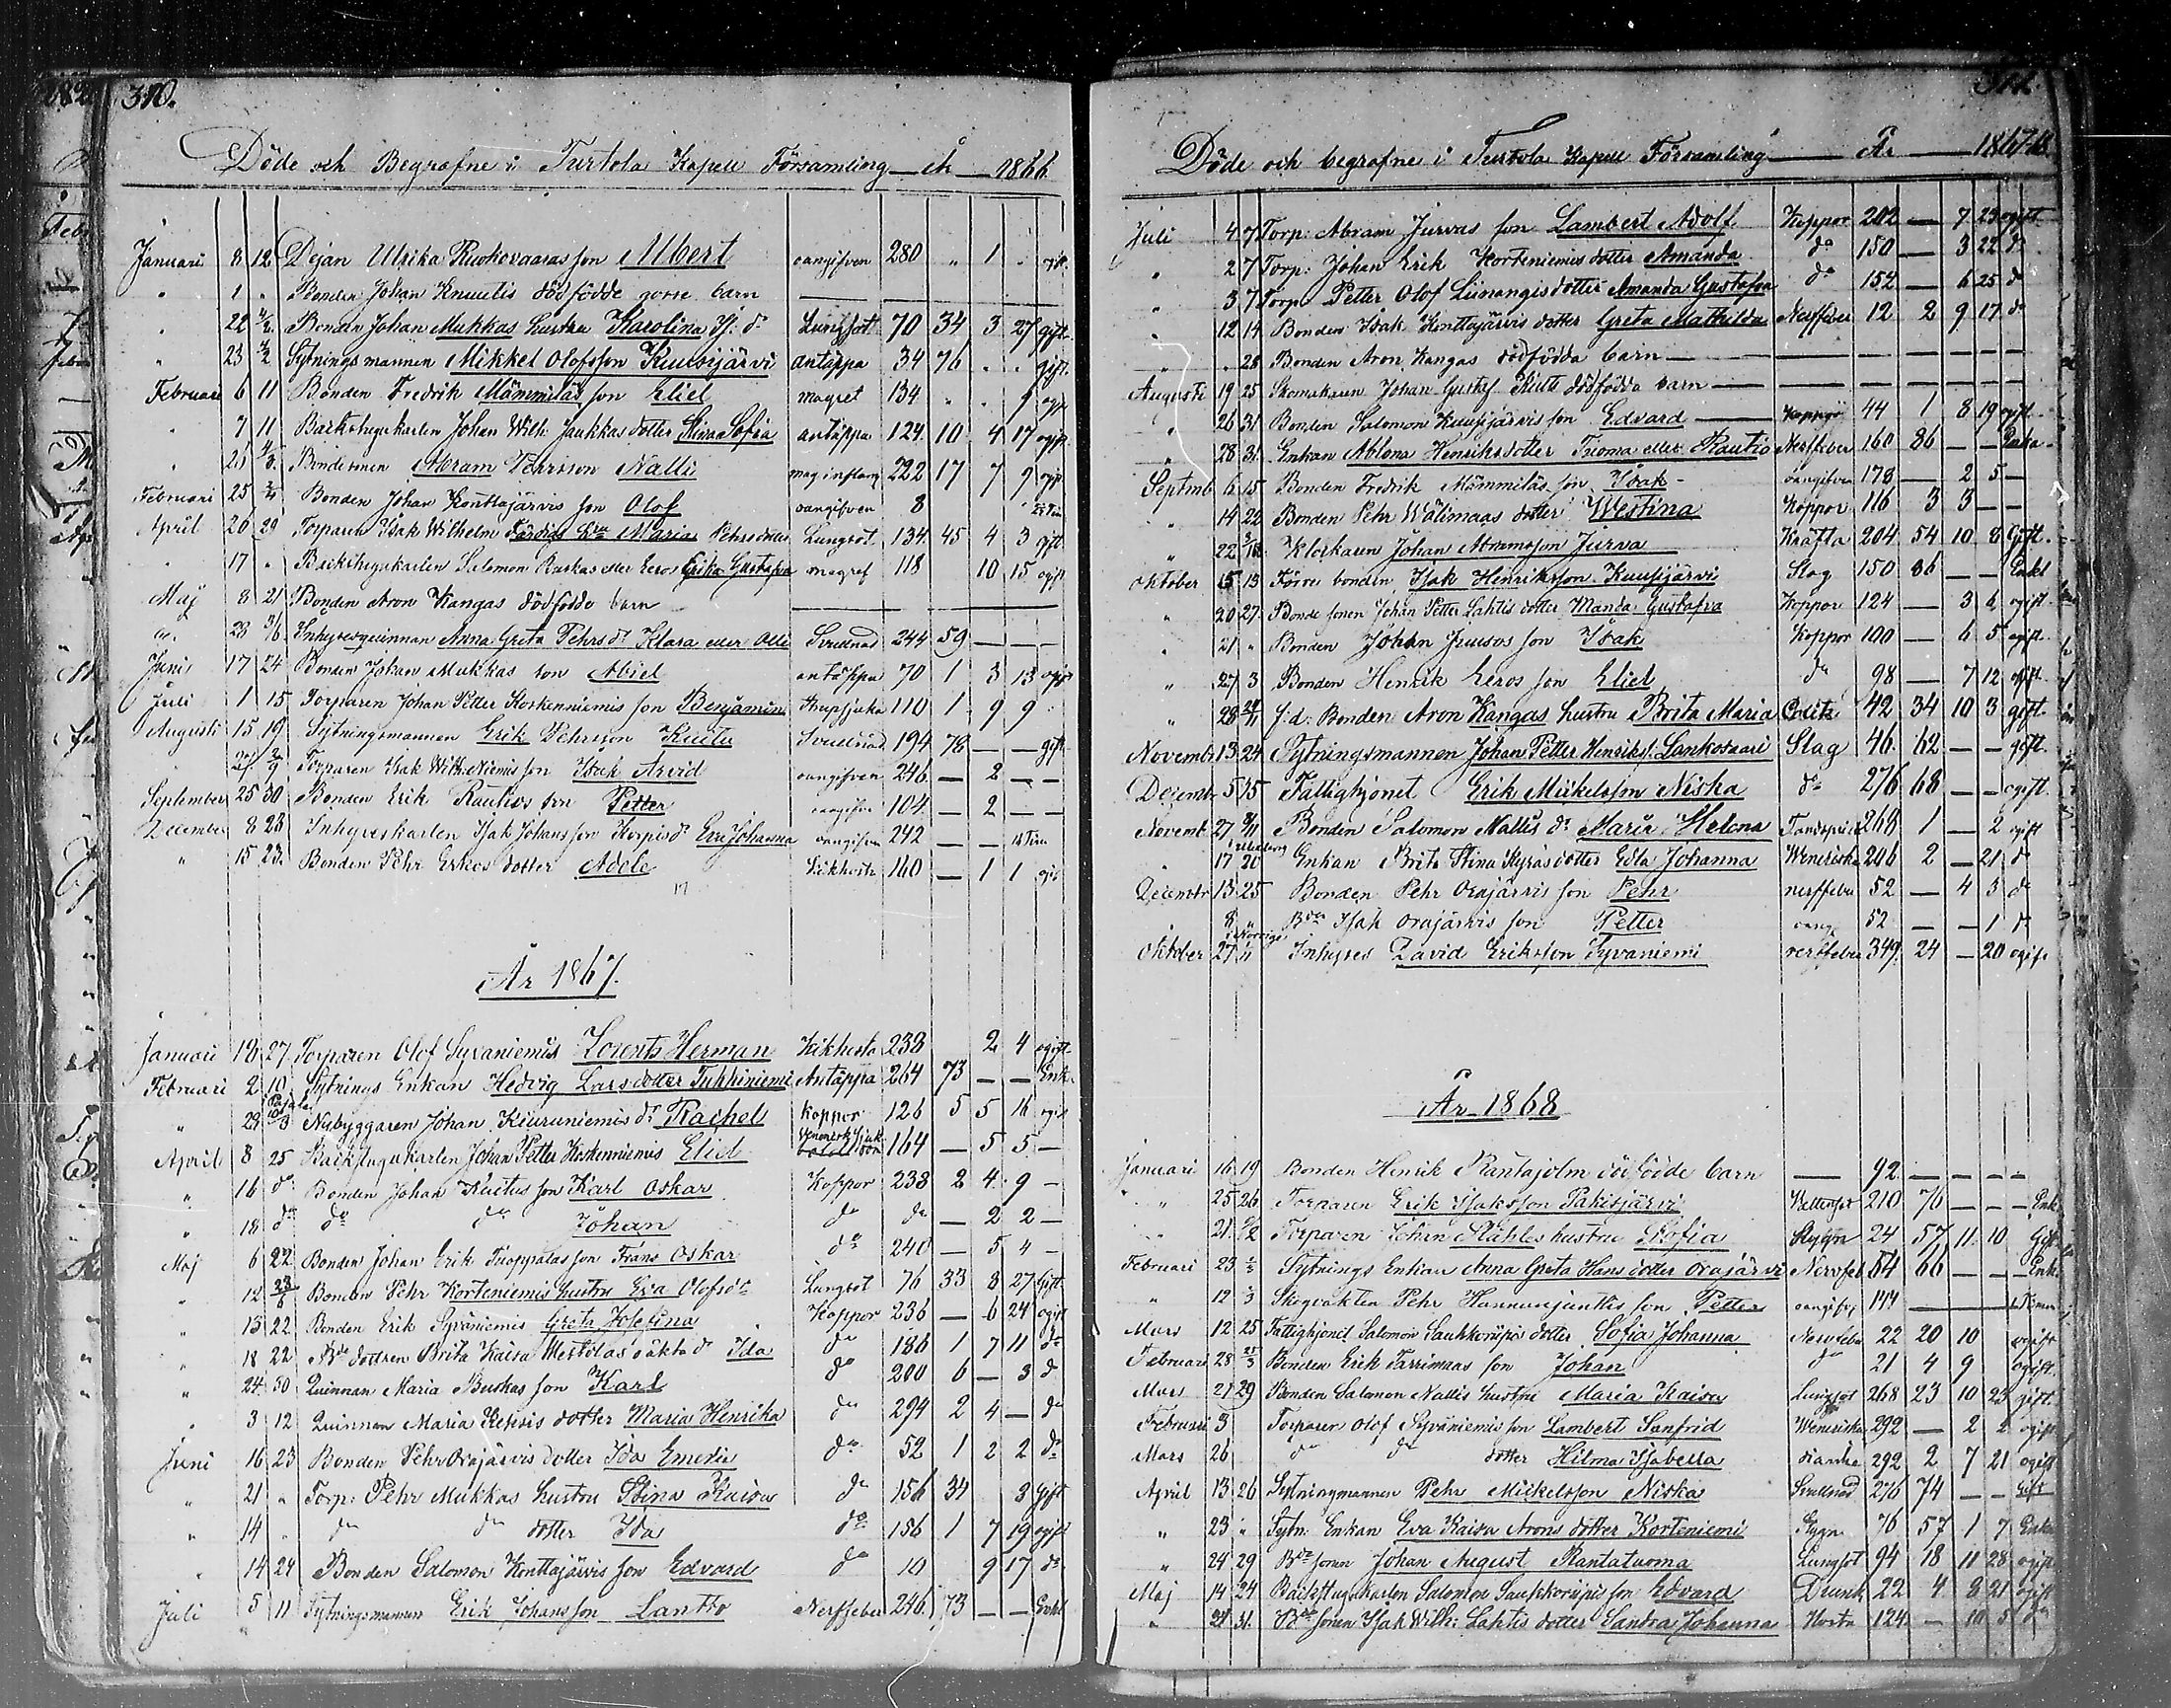 310.
Döde och Begrafne i Turtola Kapell Församling år 1866
Januari 8 12 Pejan Ulrika Ruokovaaras son Albert oangifven 280 " 1 .
" 1 " Bonden Johan Knuutis dödfödde gosse barn
" 22 4/2 Bonden Johan Mukkas hustru Karolina Lungsot 70 34 3 27 gift
" 23 4/2 Sytningsmannen Mikkel Olofsson Kuusijärvi Antäppa 34 76 . . gift.
Februari 6 11 Bonden Fredrik Mämmiläs son Eliel magret 134 . . 9 ogift
" 7 11 Backstugukarlen Johan Wilh. Jaukkas dotter Stina Sofia antäppa 124 10 4 17 ogift
" 25 4/3 Bondesonen Abram Persson Nalli mag inflam 222 17 7 9 ogift
Februari 25 2/4 Bonden Johan Konttajärvis son Olof oangifven 8
April 26 29 Torparen Isak Wilhelm Maria Pehrsdotter Lungsot 134 45 4 3 gift
" 17 " Backstugukarlen Salomon Ruskas eller Eeros Erika Gustafva magref 118 10 15 ogift
Maj 8 21 Bonden Aron Kangas dödfödde barn
" 28 3/6 Inhyresqvinnan Anna Greta Pehrs dr Klara eller Olli Svullnad 244 59 — — —
Juni 17 24 Bonden Johan Mukkas son Abiel antäppa 70 1 3 13 ogift
Juli 1 15 Torparen Johan Petter Korkenniemis son Benjamin Strupsjuka 110 1 9 9
Augusti 15 19 Sytningsmannen Erik Pehrsson Kuitu Svullnad 194 78 — — gift
" 27 2/9 Torparen Isak Wilh. Niemis son Isak Arvid oangifven 246 — 2 — —
September 25 30 Bonden Erik Rautios son Petter oangifven 104 — 2 — —
December 8 23 Inhyreskarlen Isak Johansson Korpis dr Eva Johanna oangifven 242 — —
" 15 23 Bonden Pehr Erkes dotter Adele Kikhosta 160 — 1 1 ogift
År 1867.
Januari 18 27 Torparen Olof Syvaniemis Lorents Herman Kikhosta 238 2 4 ogift
Februari 2 10 Sytnings Enkan Hedvig Larsdotter Tuhkiniemi Antäppa 264 73 — — Enka
" 29 Pajala Nybyggaren Johan Kiuruniemis dr Rachel koppor 126 5 5 16 ogift
April 8 25 Backstugukarlen Johan Petter Korkenniemis Eliel Venerisk sjuk 164 — 5 5 —
" 16 do Bonden Johan Kuitus son Karl Oskar Koppor 238 2 4 9 —
" 18 do do do Johan do do — 2 2 —
Maj 6 22 Bonden Johan Erik Tuoppalas son Frans Oskar do 240 — 5 4 —
" 12 23/6 Bonden Pehr Korteniemis hustru Eva Olofsdr Lungsot 76 33 8 27 Gift
" 13 22 Bonden Erik Syväniemis Greta Josefina Koppor 236 — 6 24 ogift
" 18 22 Bde dottren Brita Kaisa Mertolas oäkta dr Ida do 186 1 7 11 do
" 24 30 Quinnan Maria Buskas son Karl do 200 6 — 3 d
" 3 12 Quinnan Maria Keksis dotter Maria Henrika do 294 2 4 — do
Juni 16 23 Bonden Pehr Orajärvis dotter Ida Emelia do 52 1 2 2 do
" 21 " Torp: Pehr Mukkas hustru Stina Kaisa do 156 34 3 Gift
" 14 . do do dotter Ida do 156 1 7 19 ogift
" 14 24 Bonden Salomon Konttajärvis son Edvard do 10 9 17 do
Juli 5 11 Sytningsmannen Erik Johansson Lantto Nerffeber 246 73 — — Enkl
Döde och begrafne i Turtola Kapell Församling År 1867-68
Juli 4 7 Torp: Abram Jurvas son Lambert Adolf Koppor 202 — 7 23 ogift
" 2 7 Torp: Johan Erik Korteniemis dotter Amanda do 150 — 3 22 do
" 3 7 Torp. Petter Olof Liinangis dotter Amanda Gustafva do 152 — 6 25 do
" 12 14 Bonden Isak Konttajärvis dotter Greta Mathilda Nerffeber 12 2 9 17 do
" . 28 Bonden Aron Kangas dödfödda barn
Augusti 19 25 Skomakaren Johan Gustaf dödfödda barn
" 26 31 Bonden Salomon Kuusijärvis son Edvard koppor 44 1 8 19 ogift
" 28 31 Enkan Ablona Henriksdotter Tuoma eller Rautio Nerffeber 160 86 — — Enka
Septmb 6 15 Bonden Fredrik Mämmiläs son Isak oangifven 178 — 2 5 —
" 14 22 Bonden Pehr Wälimaas dotter Westina Koppor 116 3 3 — —
" 22 Klockaren Johan Abramsson Jurva Kräfta 204 54 10 8 Gift
Oktober 5 13 Förre bonden Isak Henriksson Kuusijärvi Slag 150 86 — — Enkl
" 20 27 Bonde sonen Johan Petter Lahtis dotter Manda Gustafva Koppor 124 — 3 6 ogift
" 21 " Bonden Johan Juusos son Isak Koppor 100 — 6 5 ogift
" 27 3 Bonden Henrik Eeros son Eliel do 98 — 7 12 ogift
" 28 24/11 f.d: Bonden Aron Kangas hustru Brita Maria Colik 42 34 10 3 gift
Novemb 13 24 Sytningsmannen Johan Petter Henriks. Lankosaari Slag 46 62 — — gift
Decemb 5 15 Fattighjonet Erik Mickelsson Niska do 276 68 — — ogift
Novemb. 27 Bonden Salomon Nallis dr Maria Helena 268 1 — 2 ogift
" 17 20 Enkan Brita Stina Kyräs dotter Edla Johanna Weneriska 206 2 — 21 do
Decembr 13 25 Bonden Pehr Orajärvis son Pehr nerffeber 52 — 4 3 do
" 8 " Bden Isak Orajärvis son Petter oang 52 — — 1 do
Oktober 27 i Norrige Inhyses David Eriksson Syvaniemi nerffeber 349 24 — 20 ogift
År 1868
Januari 16 19 Bonden Henrik Rantajolm dödfödde barn — 92 — — — —
" 25 26 Torparen Erik Isaksson Pakisjärvi Vattensot 210 76 — — — Enkl
" 21 2/2 Torparen Johan Ståhles hustru Sofia Stygn 24 57 11 10 Gift
Februari 23 Sytnings Enkan Anna Greta Hansdotter Orajärvi Nervfeb 54 66 — — — Enka
" 12 Skogvakten Pehr Hannunjunttis son Petter oangifv 144
Mars 12 25 Fattighjonet Salomon Saukkoriipis dotter Sofia Johanna Nervfeber 22 20 10 ogift
Februari 28 Bonden Erik Tarrimaas son Johan do 21 4 9 ogift
Mars 21 29 Bonden Salomon Nallis hustru Maria Kaisa Lungsot 268 23 10 23 gift.
Februari 3 Torparen Olof Syväniemis son Lambert Sanfrid Weneriska 292 — 2 2 ogift
Mars 26 do do dotter Hilma Isabella 292 2 7 21 ogift
April 13 26 Sytningmannen Pehr Mickelsson Niska Svullnad 276 74 — — Gift
" 23 " Sytn: Enkan Eva Kaisa Arons dotter Korteniemi Stygn 76 57 1 7 Enka
" 24 29 Bde sonen Johan August Rantatuoma Lungsot 94 18 11 28 ogift
Maj 14 24 Backstugukarlen Salomon Saukkoriipis son Edvard Drunk 22 4 8 21 ogift
" 21 31. Bde sonen Isak Wilh: Lahtis dotter Sandra Johanna Hosta 124 — 10 5 do